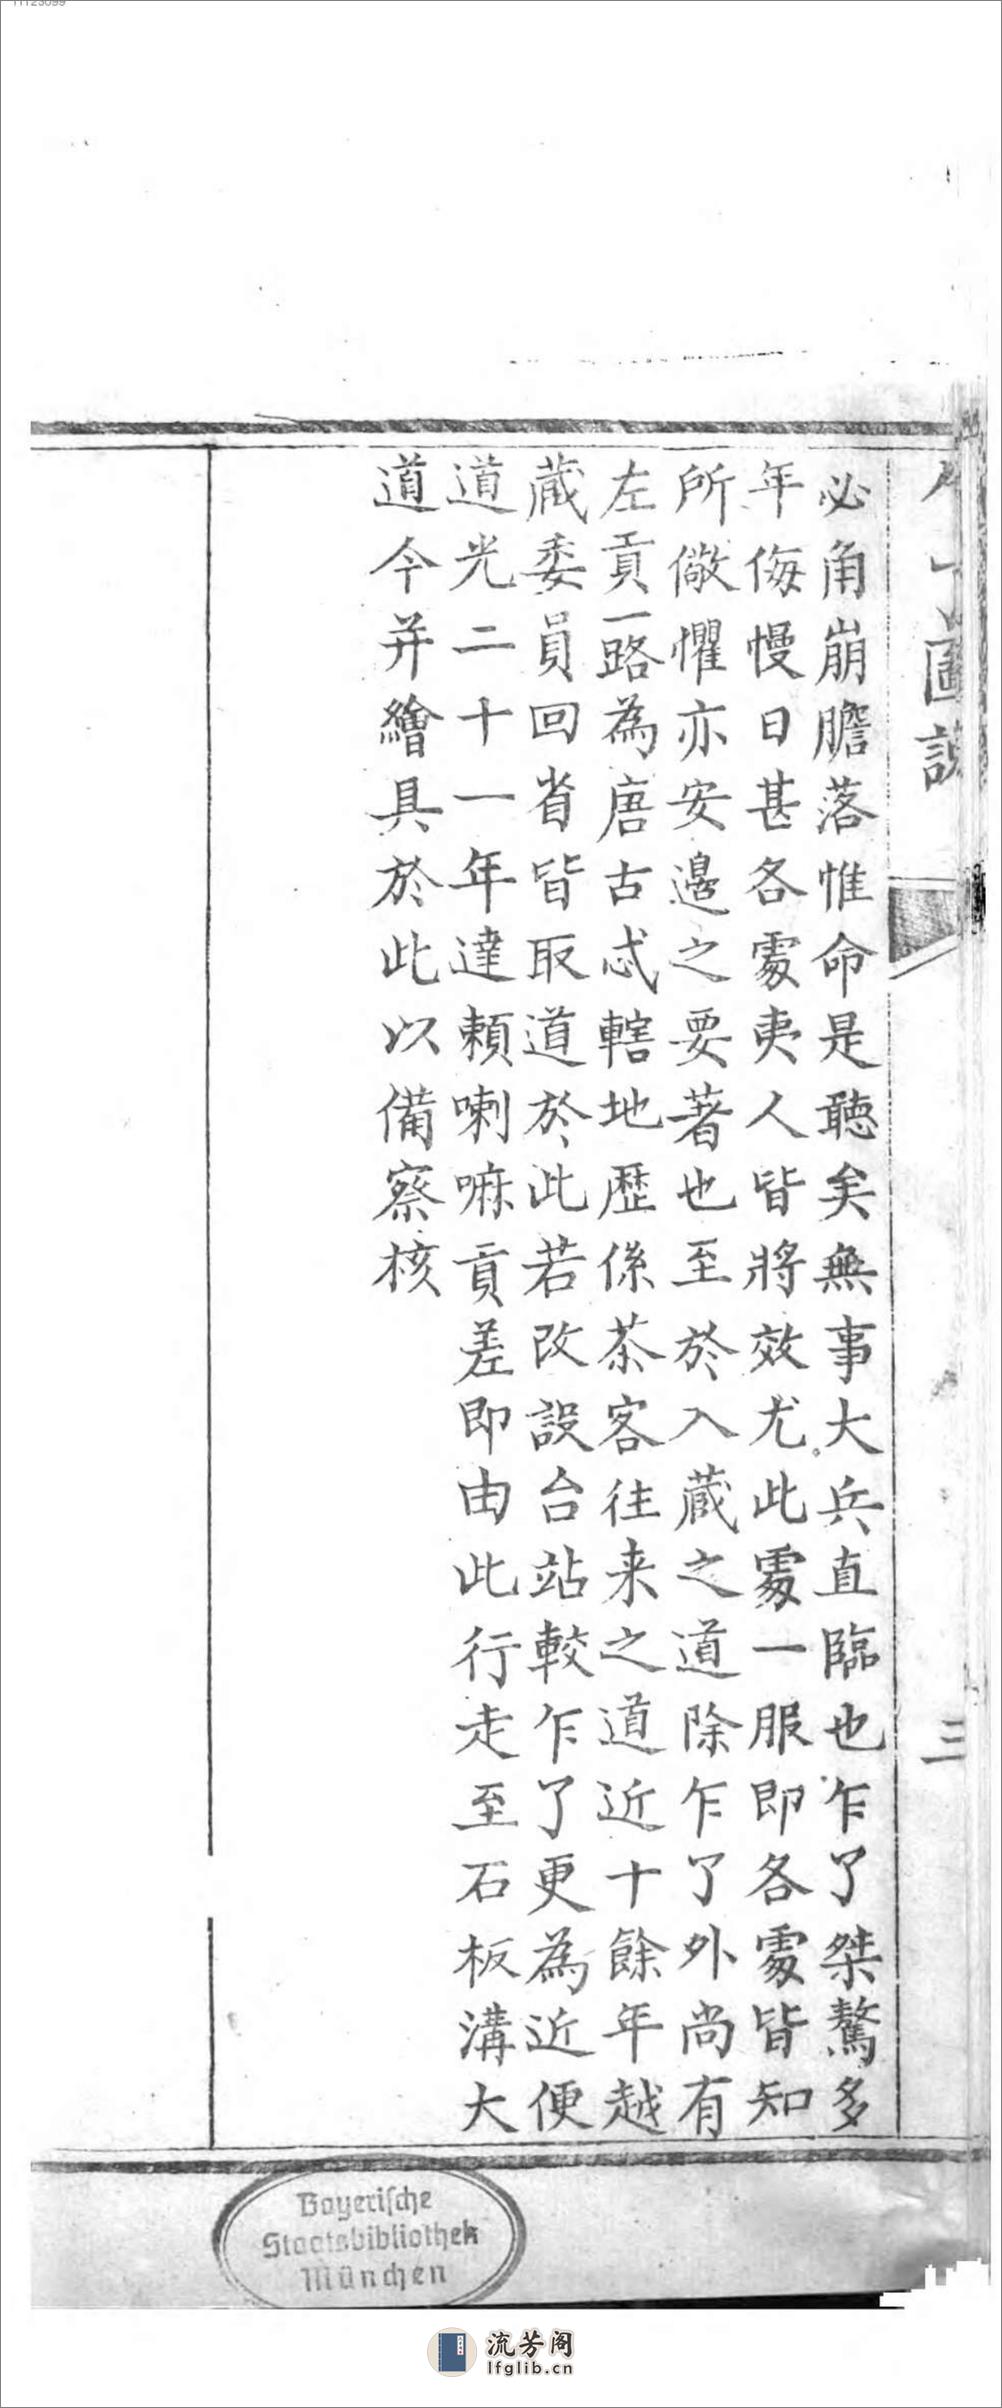 11125099
必角崩膽落惟命是聽矣無事大兵直臨也乍了桀驁多
年侮慢日甚各䖏夷人皆將效尤此䖏一服即各䖏皆知
所儆懼亦安邊之要著也至於入蔵之道除乍了外尚有
左貢一路為唐古忒轄地歷係茶客往来之道近十餘年越
蔵委員回省皆取道於此若改設台站較乍了更為近便
道光二十一年達頼喇嘛貢差即由此行走至石板溝大
道今并繪具於此以備察核
圖說
三
Bayerische
Staatsbibliothek
München
流芳阁
lfglib.cn